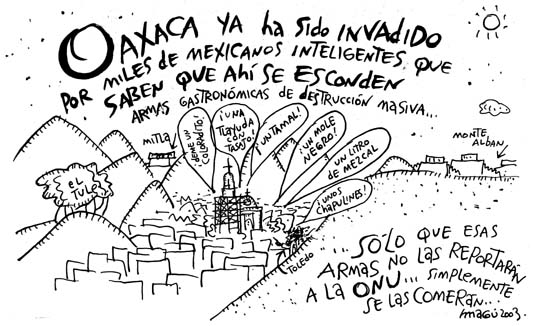 OAXACA YA ha sido INVADIDO
POR MILES DE MEXICANOS INTELIGENTES QUE
SABEN QUE AHÍ SE ESCONDEN
ARMAS GASTRONÓMICAS DE DESTRUCCIÓN MASIVA...
MITLA
¡DEME UN COLORADITO!
¡UNA TLAYUDA CON TASAJO!
¡UN TAMAL!
¡UN MOLE NEGRO!
¡UN LITRO DE MEZCAL!
¡UNOS CHAPULINES!
MONTE ALBAN
EL TULE
TOLEDO
...SÓLO QUE ESAS
ARMAS NO LAS REPORTARÁN
A LA ONU... SIMPLEMENTE
SE LAS COMERÁN...
MAGÚ 2003.